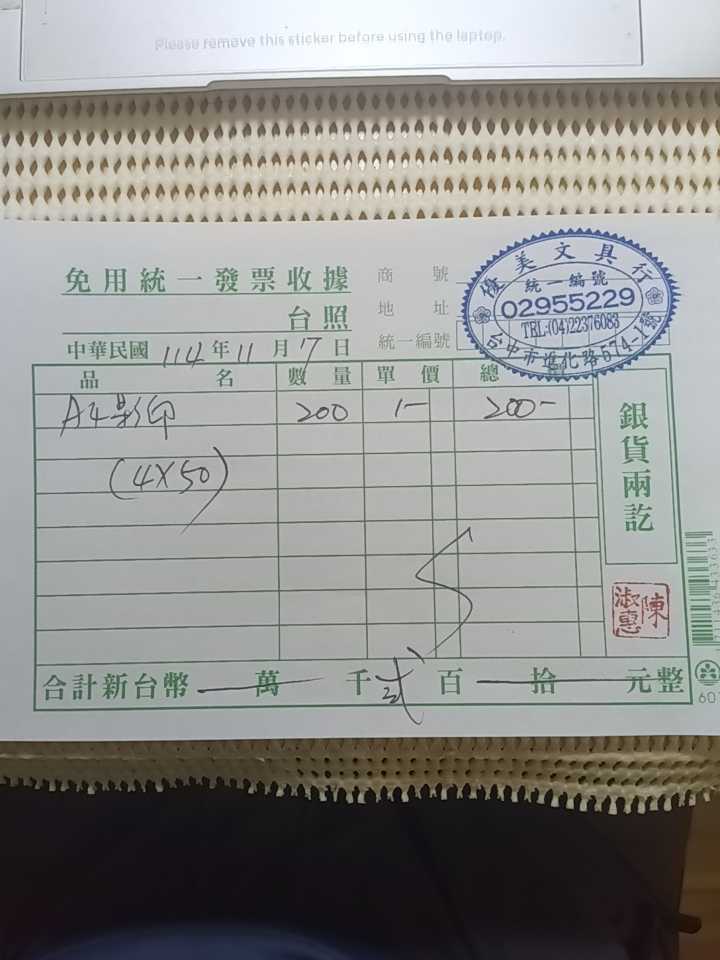 Please remove this sticker before using the laptop.
免用統一發票收據
台照
中華民國 114 年 11 月 17 日
商號
地址
統一編號
優美文具行
統一編號
02955229
TEL:(04)22376083
台中市進化路574-1號
品名 數量 單價 總
A4影印 200 1- 200-
(4X50)
銀貨兩訖
陳淑惠
合計新台幣 萬 千 貳 百 拾 元整
60